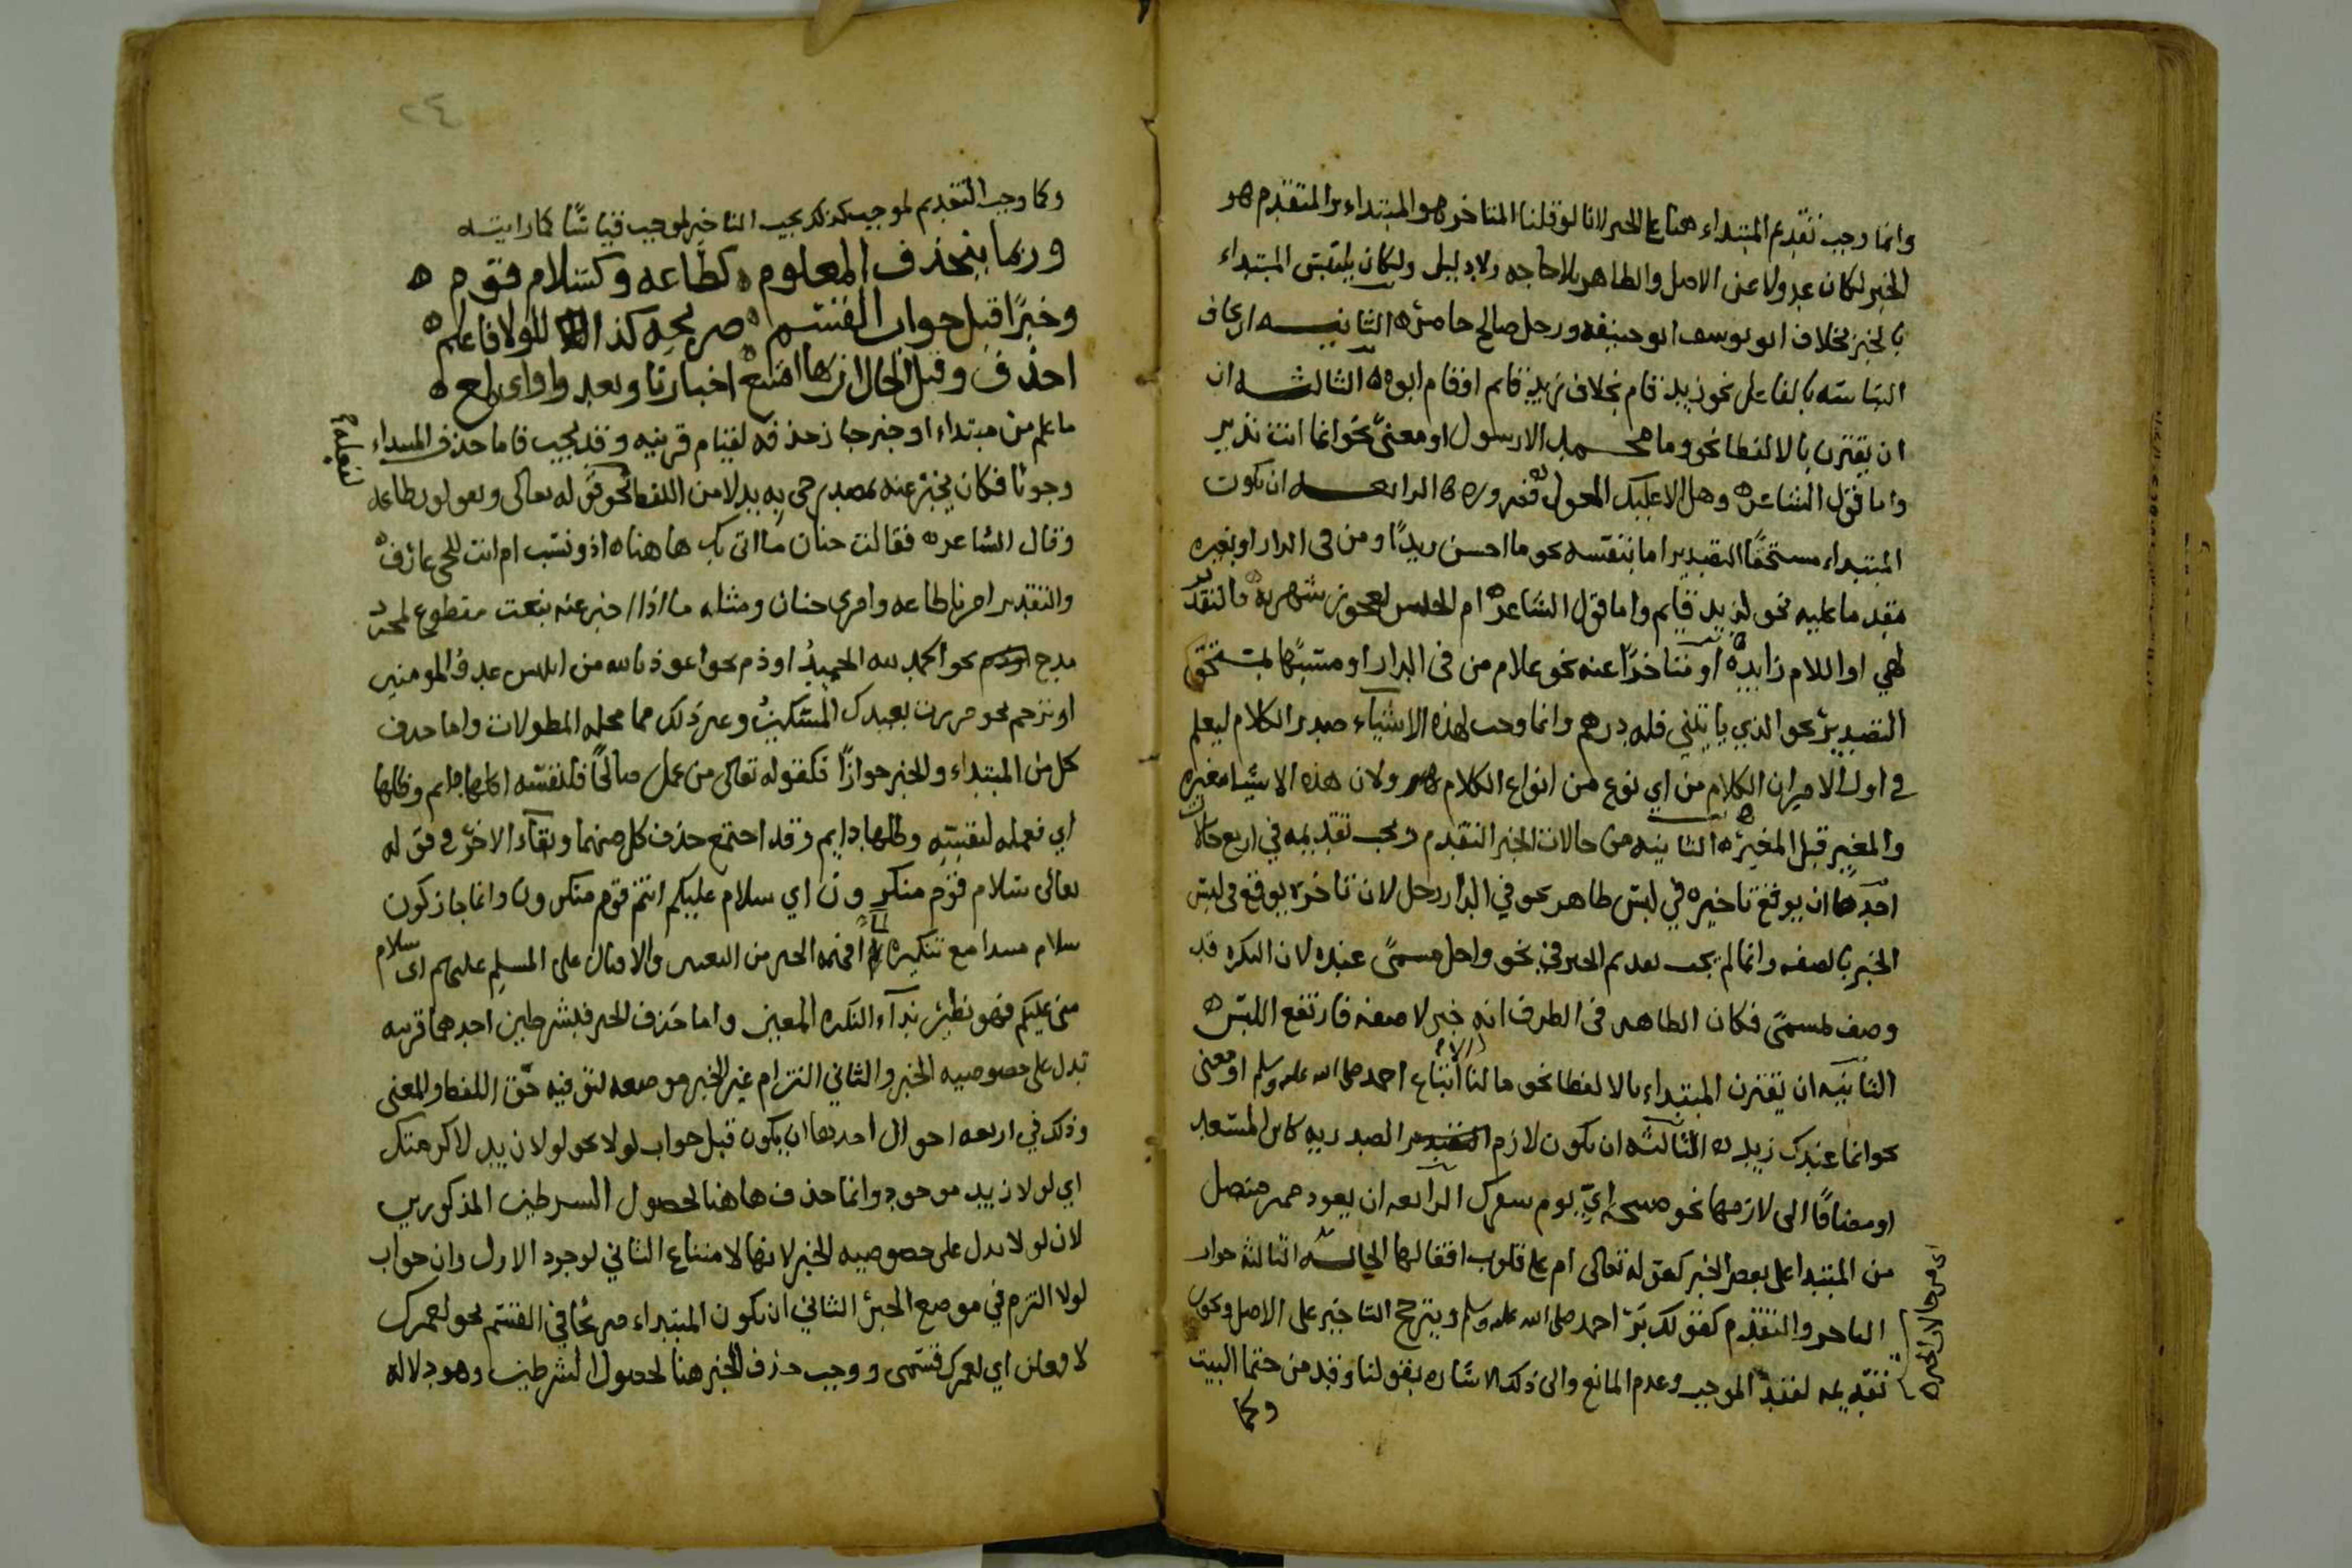 وانما وجب تقديم المبتداء هنا على الخبر لانا لو قلنا المتاخر هو المبتداء والمتقدم هو
الخبر لكان عدولا عن الاصل والظاهر بلا حاجه ولا دليل ولكان يلتبس المبتداء
بالخبر بخلاف ابو يوسف ابو حنيفه ورجل صالح حاضر الثانيه ان يخاف
التباسه بالفاعل نحو زيد قام بخلاف زيد قايم او قام ابوه الثالثه ان
ان يقترن بالا لفظا نحو وما محمد الا رسول او معنىً نحو انما انت نذير
واما قول الشاعر وهل الا عليك المعول فضروره الرابعه ان يكون
المبتداء مستحقًا التصدير اما بنفسه نحو ما احسن زيدًا ومن في الدار او بغيره
مقدما عليه نحو لزيد قايم واما قول الشاعر ام الحليس لعجوز شهربه فالتقدير
لهي او اللام زايده او متاخرًا عنه نحو غلام من في الدار او مشبهًا بمستحق
التصدير نحو الذي ياتيني فله درهم وانما وجب لهذه الاشياء صدر الكلام ليعلم
في اول الامر ان الكلام من اي نوع من انواع الكلام ولان هذه الاشيا مغيره
والمغير قبل المغير الثانيه من حالات الخبر التقدم ويجب تقديمه في اربع حالات
احدها ان يوقع تاخيره في لبس ظاهر نحو في الدار رجل لان تاخره يوقع في لبس
الخبر بالصفه وانما لم يجب تقديم الخبر في نحو واجل مسمىً عنده لان النكره قد
وصف بمسمىً فكان الظاهر في الظرف انه خبر لا صفه فارتفع اللبس
الثانيه ان يقترن المبتداء بالا لفظا نحو ما لنا الا اتباع احمد صلى الله عليه وسلم او معنى
نحو انما عندك زيد الثالثه ان يكون لازم الصدريه كاين المستعد
او مضافًا الى لازمها نحو صبيحه اي يوم سفرك الرابعه ان يعود ضمير متصل
من المبتدا على بعض الخبر كقوله تعالى ام على قلوب اقفالها الحاله الثالثه جواز
التاخر والتقدم كقولك بَرّ احمد صلى الله عليه وسلم ويترجح التاخير على الاصل ويجوز
تقديمه لفقد الموجب وعدم المانع والى ذلك الاشاره بقولنا وقدمن حتما البيت
وكما
٢٤
وكما وجب التقديم لموجب كذلك يجب التاخير لموجب قياسًا كما رايته
وربما ينحذف المعلوم كطاعه وكسلام قوم
وخبرًا قبل جواب القسم صريحه كذا للولا فاعلم
احذف وقبل الحال ان بها امتنع اخبارنا وبعد واو اي بمع
ما علم من مبتداء او خبر جاز حذفه لقيام قرينه وقد يجب فاما حذف المبتداء
وجوبًا فكان يخبر عنه بمصدر جي به بدلا من اللفظ نحو قوله تعالى ويقولون طاعه
وقال الشاعر فقالت حنان ما اتى بك هاهنا اذو نسب ام انت للحي عارف
والتقدير امرنا طاعه وامري حنان ومثله ما اذا اخبر عنه بنعت مقطوع لمجرد
مدح نحو الحمد لله الحميدُ او ذم نحو اعوذ بالله من ابليس عدوُّ المومنين
او ترحم نحو مررت بعبدك المسكينُ وغير ذلك مما محله المطولات واما حذف
كل من المبتداء والخبر جوازًا فكقوله تعالى من عمل صالحًا فلنفسه اكلها دايم وظلها
اي فعمله لنفسه وظلها دايم وقد اجتمع حذف كل منهما وبقاء الاخر في قوله
تعالى سلام قوم منكرون اي سلام عليكم انتم قوم منكرون وانما جاز كون
سلام مبتدا مع تنكيره لما فهمه الخبر من التعيين والاقبال على المسلم عليهم اي سلام
مني عليكم فهو نظير نداء النكره المعين واما حذف الخبر فبشرطين احدهما قرينه
تدل على خصوصيه الخبر والثاني التزام غير الخبر موضعه لتوفيه حق اللفظ والمعنى
وذلك في اربعه احوال احدها ان يكون قبل جواب لولا نحو لولا زيد لاكرمتك
اي لولا زيد موجود وانما حذف هاهنا لحصول الشرطين المذكورين
لان لولا تدل على خصوصيه الخبر لانها لامتناع الثاني لوجود الاول وان جواب
لولا التزم في موضع الخبر الثاني ان يكون المبتداء صريحًا في القسم نحو لعمرك
لافعلن اي لعمرك قسمي ووجب حذف الخبر هنا لحصول الشرطين وهو دلاله